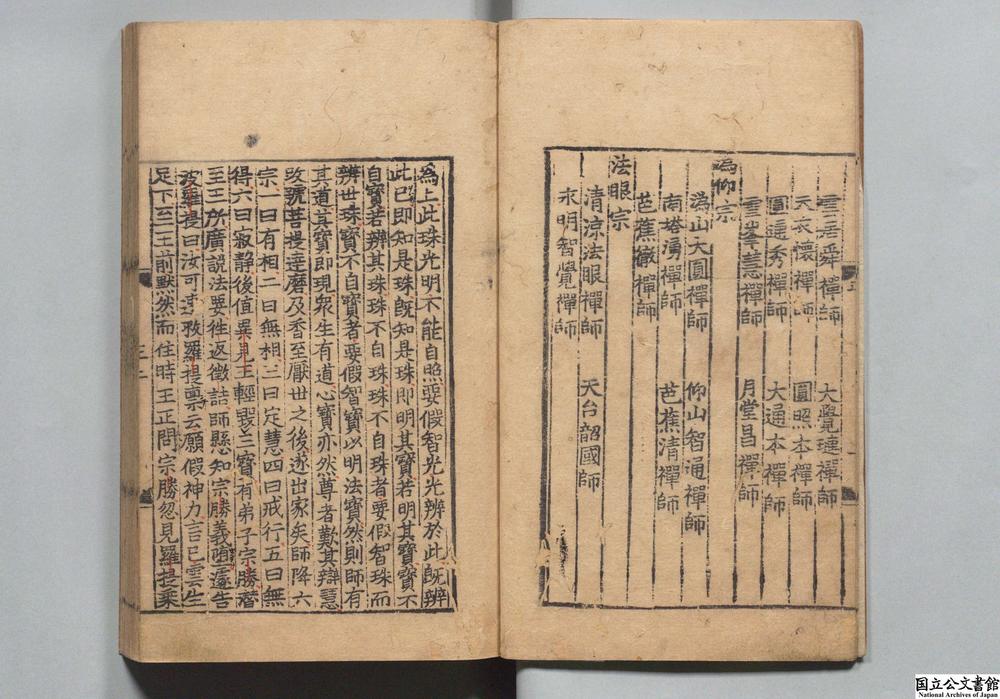 雲居舜禪師 大覺璉禪師
天衣懷禪師 圓照本禪師
圓通秀禪師 大通本禪師
雲峯慧禪師 月堂昌禪師
潙仰宗
潙山大圓禪師 仰山智通禪師
南塔湧禪師 芭蕉清禪師
芭蕉徹禪師
法眼宗
清涼法眼禪師 天台韶國師
永明智覺禪師
為上此珠光明不能自照要假智光光辨於此既辨
此已即知是珠既知是珠即明其寶若明其寶寶不
自寶若辨其珠珠不自珠珠不自珠者要假智珠而
辨世珠寶不自寶者要假智寶以明法寶然則師有
其道其寶即現衆生有道心寶亦然尊者歎其辯慧
改號菩提達磨及香至厭世之後遂出家矣師降六
宗一曰有相二曰無相三曰定慧四曰戒行五曰無
得六曰寂静後值異見王輕毀三寶有弟子宗勝潛
至王所廣說法要徃返徵詰師懸知宗勝義墮遽告
波羅提曰汝可速救羅提稟云願假神力言已雲生
足下至王前默然而住時王正問宗勝忽見羅提乗
国立公文書館
National Archives of Japan